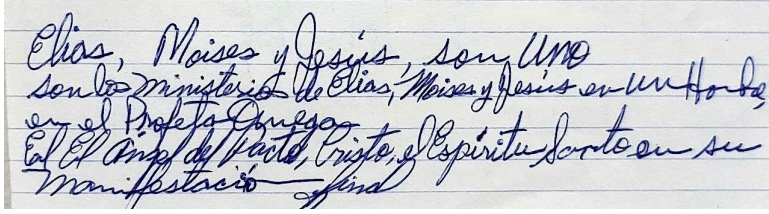 Elias, Moises y Jesús, son UNO
son los ministerios de Elias, Moises y Jesús en un Hombre,
en el Profeta Omega
Es El Angel del Pacto, Cristo, el Espíritu Santo en su
manifestación final